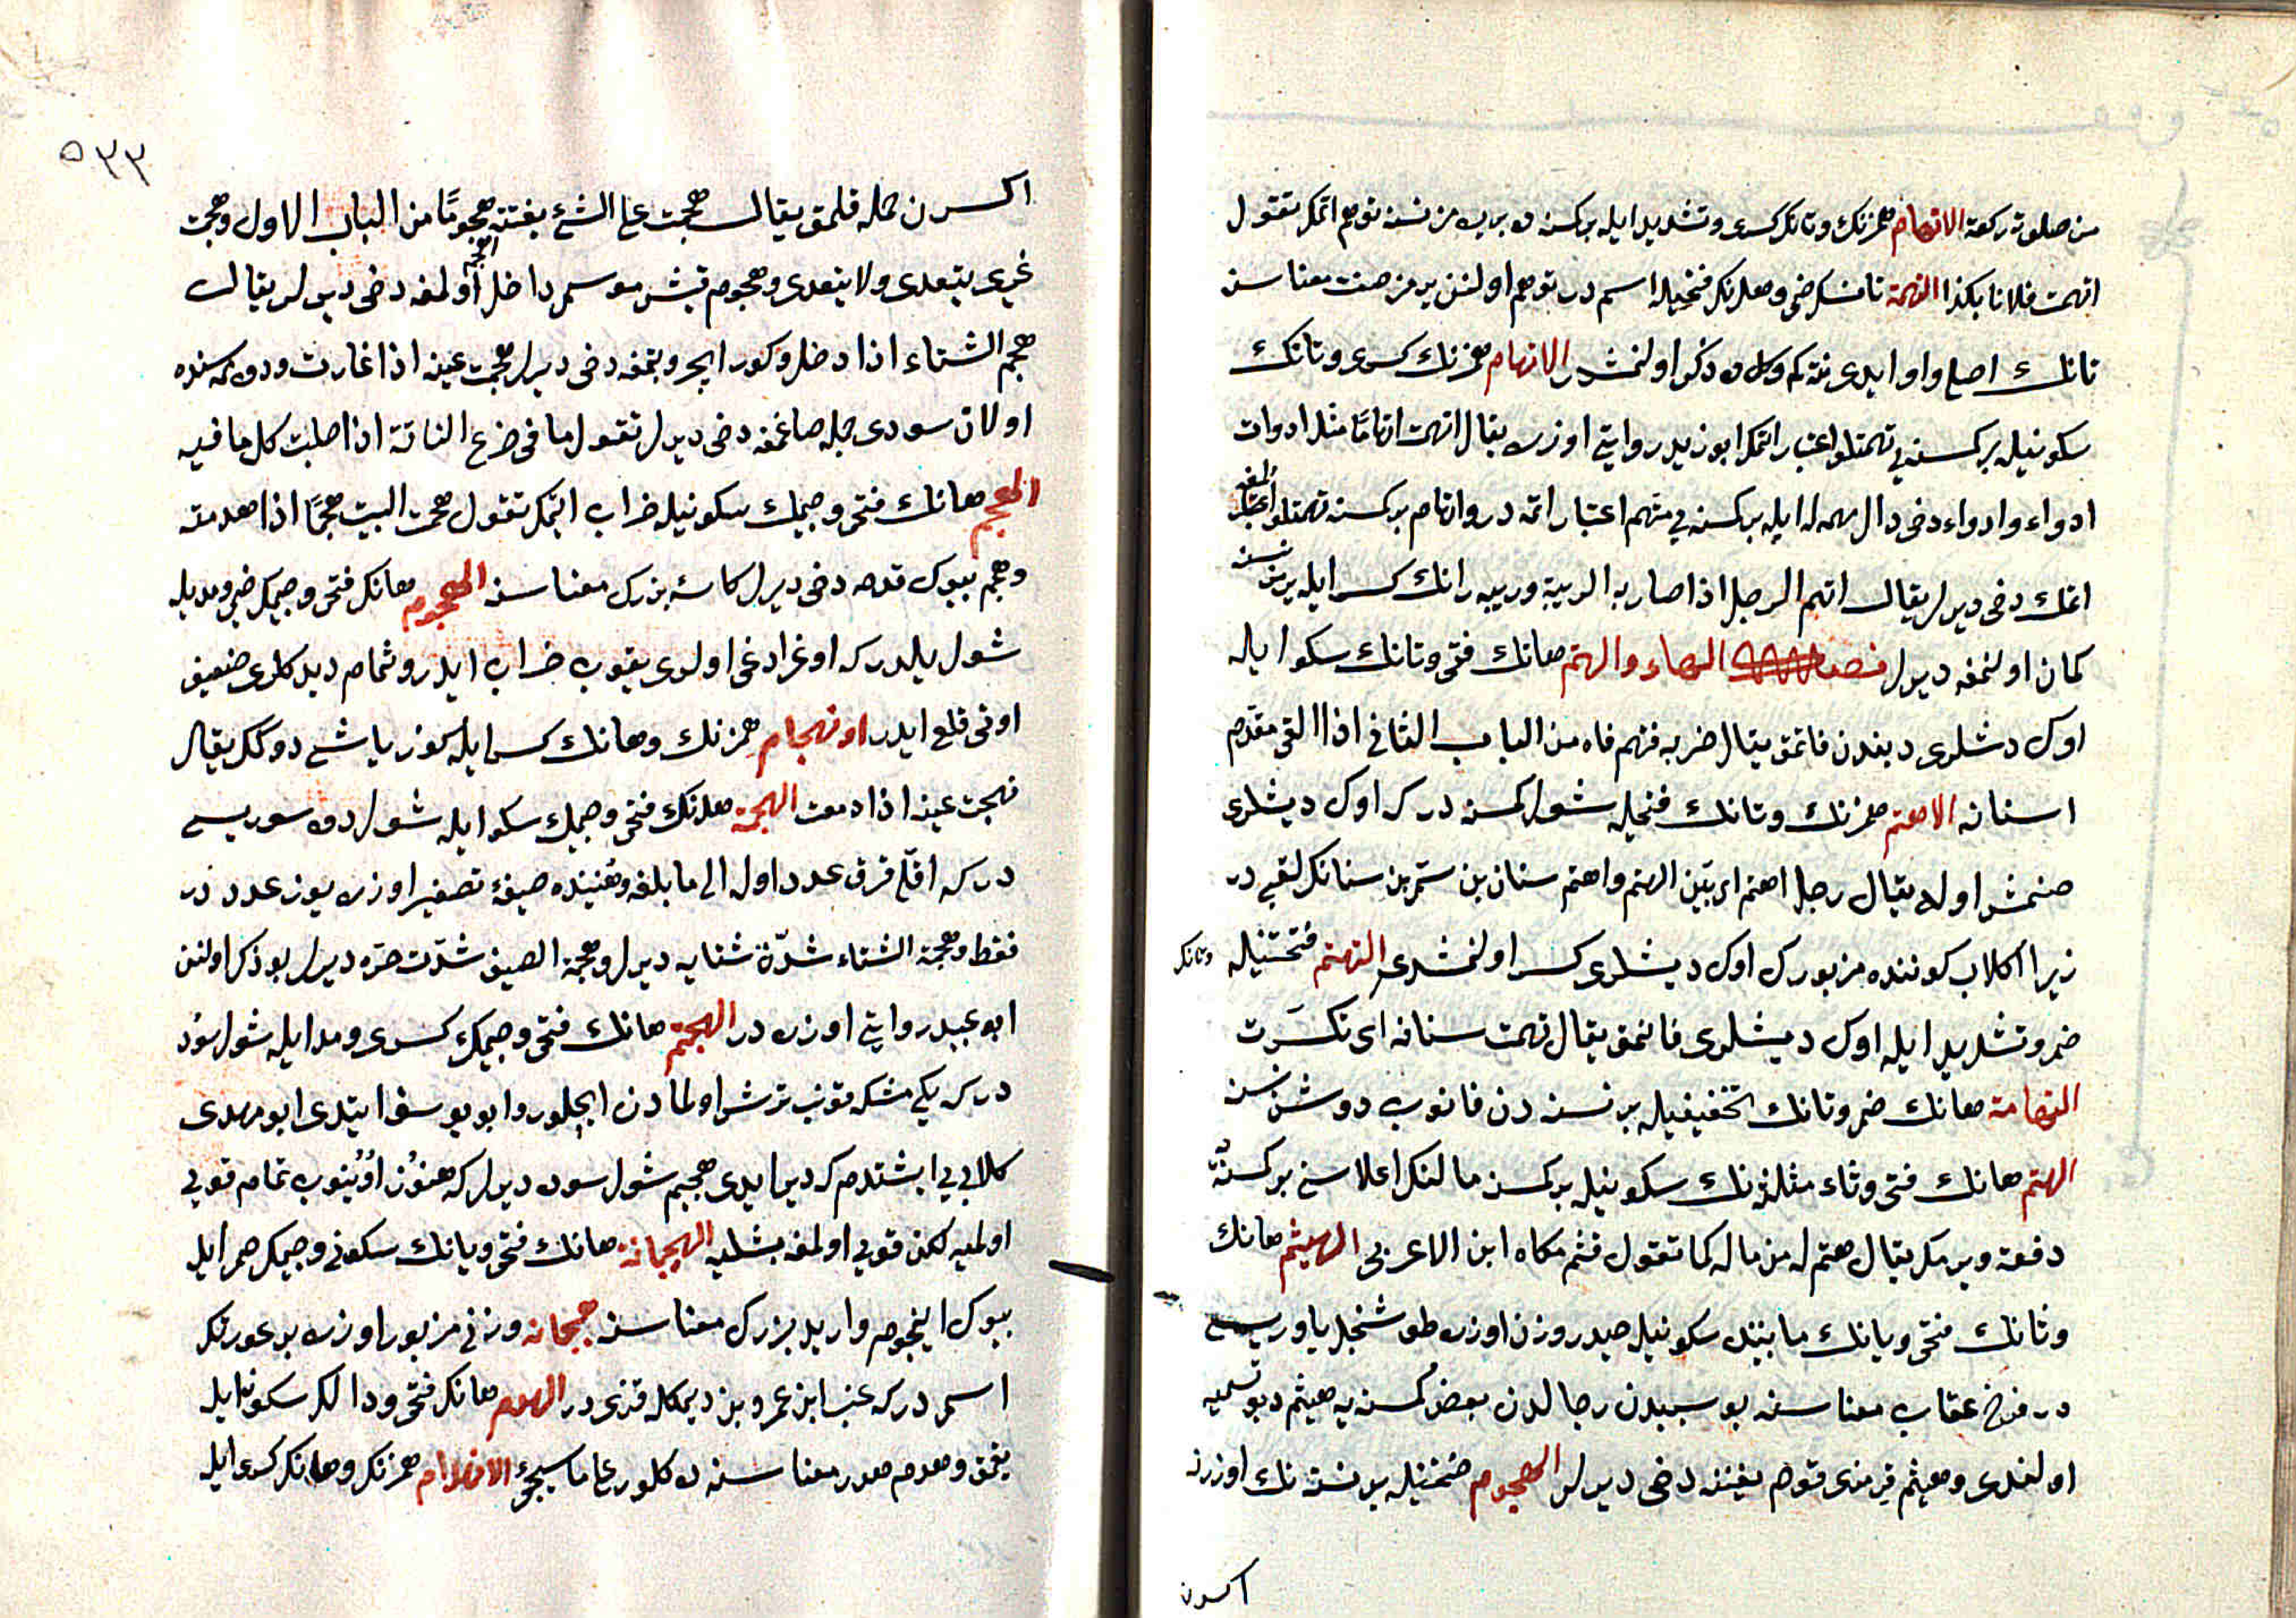 من صلوة ركعة الاتهام همزنك وتانك كسرى وتشديد ايله بر كسنه ده بر يرمز نسنه توهم اتمك تقول
اتهمت فلانا بكذا التهمة تانك ضمى وهانك فتحيله اسم در توهم اولنن يرمز صفت معناسنه
تانك اصلى واو ايدى نته كم وكل ده ذكر اولنمشدر الاتهام همزنك كسرى وتانك
سكونيله بر كسنه يى تهمتلو اعتبار اتمك ابو زيد روايتى اوزره يقال اتهمت اتهاما مثل ادوات
ادواء وادواء دخى دال مهمله ايله بر كسنه يى متهم اعتبار اتمه در واتهام بر كسنه تهمتلو اعتبار اولمغه
اتمك دخى ديرلر يقال اتهم الرجل اذا صار به الريبة وريبه رانك كسر ايله يرمز نسنه
كمان اولنمغه ديرلر فصل الهاء والهتم هانك فتحى وتانك سكوا يله
اوك دشلرى ديبندن قاتمق يقال ضربه فهتم فاه من الباب الثانى اذا القى مقدم
اسنانه الاهتم همزنك وتانك فتحيله شول كسنه در كه اوك ديشلرى
صنمش اوله يقال رجل اهتم اى بيّن الهتم واهتم سنان بن سمىّ بن سنانك لقبى در
زيرا كلاب كوننده مزبورك اوك ديشلرى كسر اولنمشدى التهتم فتحتيله وتانك
ضم وتشديد ايله اوك ديشلرى قانمق يقال تهتمت سنانه اى تكسّرت
الهتامة هانك ضم وتانك تخفيفيله بر نسنه دن قانوب دوشن نسنه
الهثم هانك فتحى وثاء مثلثه نك سكونيله بر كسنه مالنك اعلاسنى بر كسنيه
دفعة ويرمك يقال هثم له من ماله كما تقول قثم حكاه ابن الاعرابى الهيثم هانك
وثانك فتحى ويانك مابينده سكونيله حيدر وزن اوزره طوشنجل ياوريسى
در فرخ عقاب معناسنه بو سببدن رجالدن بعض كسنه يه هيثم ديو تسميه
اولندى وهيثم قرمزى قوم يغننه دخى ديرلر الهجوم ضمتيله بر نسنه نك اوزرنه
اكسرن
٥٣٣
اكسرن حمله قلمق يقال هجمت على الشئ بغتة هجوما من الباب الاول وهجمت
غيرى يتعدى ولا يتعدى وهجوم قيش موسمى داخل اولمغه دخى ديرلر يقال
هجم الشتاء اذا دخل وكوز ايچرو بتمغه دخى ديرلر هجمت عينه اذا غارت ودوه ممه سنده
اولان سودى جمله صاغمغه دخى ديرلر تقول ما فى ضرع الناقة اذا حلبت كل ما فيه
الهجم هانك فتحى وجيمك سكونيله خراب اتمك تقول هجمت البيت هجما اذا هدمته
وهجم بيوك قدحه دخى ديرلر كاسه بزرك معناسنه الهجوم هانك فتحى وجيمك ضمى ومديله
شول يلدر كه اوغرادغى اولرى يقوب خراب ايدر وثمام ديدكلرى ضعيف
اوتى قلع ايدر انهجام همزنك وهانك كسر ايله كوز ياشى دوكلك يقال
انهجمت عينه اذا دمعت الهجمة هانك فتحى وجيمك سكوا يله شول دوه سوريسى
در كه اقلى قرق عدد اوله الى ما بلغه وهنيده صيغه تصغير اوزره يوز عدد در
فقط وهجمة الشتاء شدّة شتايه ديرلر وهجمة الصيف شدّت حرّه ديرلر بو ذكر اولنن
ابو عبيد روايتى اوزره در الهجيم هانك فتحى وجيمك كسرى ومد ايله شول سود
در كه يكى مشكه قونب ترش اولمادن ايچلور وابو يوسف ايتدى ابو مهدى
كلابى يى ايشتدم كه دير ايدى هجيم شول سوده ديرلر كه هنوز اويُيوب تمام قويى
اولميه لكن قويى اولمغه بشليه الهيجمانة هانك فتحى ويانك سكونى وجيمك ضم ايله
بيوك اينجوم واريد بزرك معناسنه هيجمانه وزنى مزبور اوزره بر عورتك
اسمى در كه عنبر ابن عمرو بن ديمكله قزى در الهدم هانك فتحى ودالك سكونايله
يقمق وهدم هدر معناسنه ده كلور على ما سيجئ الانهدام همزنك وهانك كسرى ايله